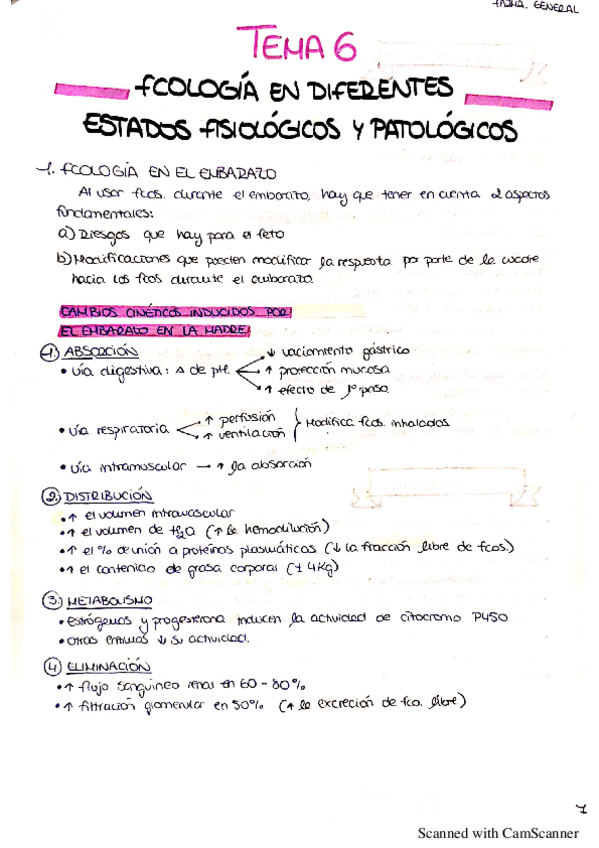 FARMA. GENERAL
TEMA 6
FCOLOGÍA EN DIFERENTES
ESTADOS FISIOLÓGICOS Y PATOLÓGICOS
1. FCOLOGÍA EN EL EMBARAZO
Al usar fcos. durante el embarazo, hay que tener en cuenta 2 aspectos
fundamentales:
a) Riesgos que hay para el feto
b) Modificaciones que pueden modificar la respuesta por parte de la madre
hacia los fcos durante el embarazo.
CAMBIOS CINÉTICOS INDUCIDOS POR
EL EMBARAZO EN LA MADRE
1) ABSORCIÓN
• vía digestiva: Δ de pH.
↓ vaciamiento gástrico
↑ protección mucosa
↑ efecto de 1º paso
• vía respiratoria
↑ perfusión
↑ ventilación
Modifica fcos. inhalados
• vía intramuscular → ↑ la absorción
2) DISTRIBUCIÓN
• ↑ el volumen intravascular
• ↑ el volumen de H2O (↑ la hemodilución)
• ↑ el % de unión a proteínas plasmáticas (↓ la fracción libre de fcos.)
• ↑ el contenido de grasa corporal (± 4Kg)
3) METABOLISMO
• estrógenos y progesterona inducen la actividad de citocromo P450
• otras enzimas ↓ su actividad.
4) ELIMINACIÓN
• ↑ flujo sanguíneo renal en 60 - 80%
• ↑ filtración glomerular en 50% (↑ la excreción de fco. libre)
1
Scanned with CamScanner